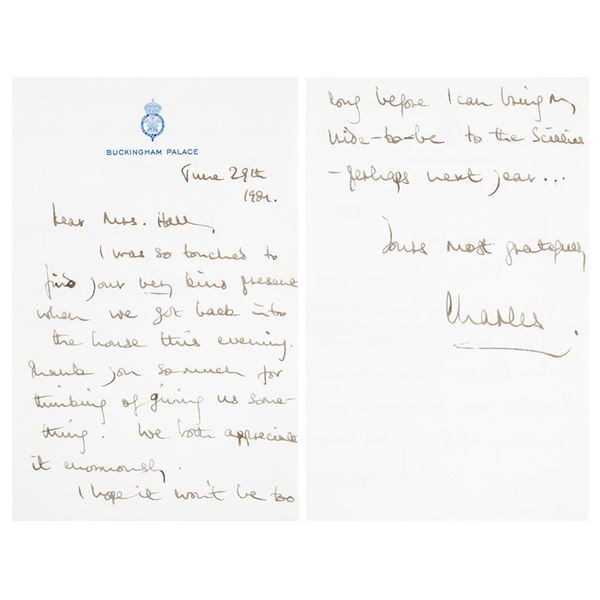 BUCKINGHAM PALACE
June 29th
1981.
Dear Mrs. Hall,
I was so touched to
find your very kind present
when we got back into
the house this evening.
Thank you so much for
thinking of giving us some-
thing. We both appreciate
it enormously.
I hope it won't be too
long before I can bring my
bride-to-be to the Scillies
- perhaps next year...
Yours most gratefully
Charles.